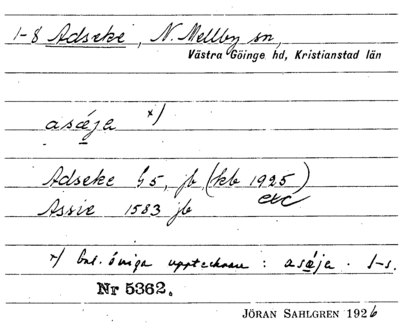 1-8 Adseke, N. Mellby sn,
Västra Göinge hd, Kristianstad län
asája x)
Adseke G5, jb (kb 1925)
etc
Assie 1583 jb
x) enl. övriga upptecknare : asája. J-s.
Nr 5362.
JÖRAN SAHLGREN 1926